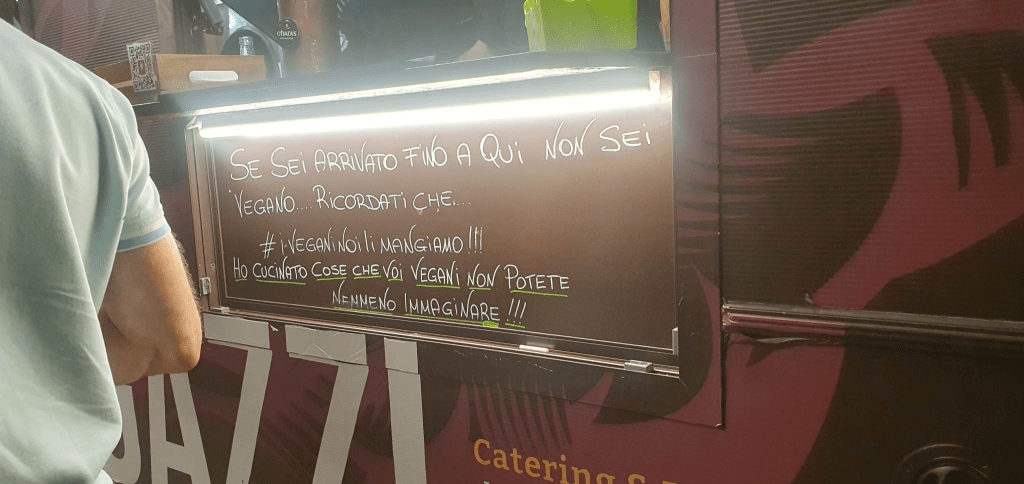 OHARA'S
SE SEI ARRIVATO FINO A QUI NON SEI
VEGANO.... RICORDATI CHE...
#iVEGANiNOiLiMANGIAMO!!!
HO CUCINATO COSE CHE VOI VEGANI NON POTETE
NEMMENO IMMAGINARE!!!
Catering &